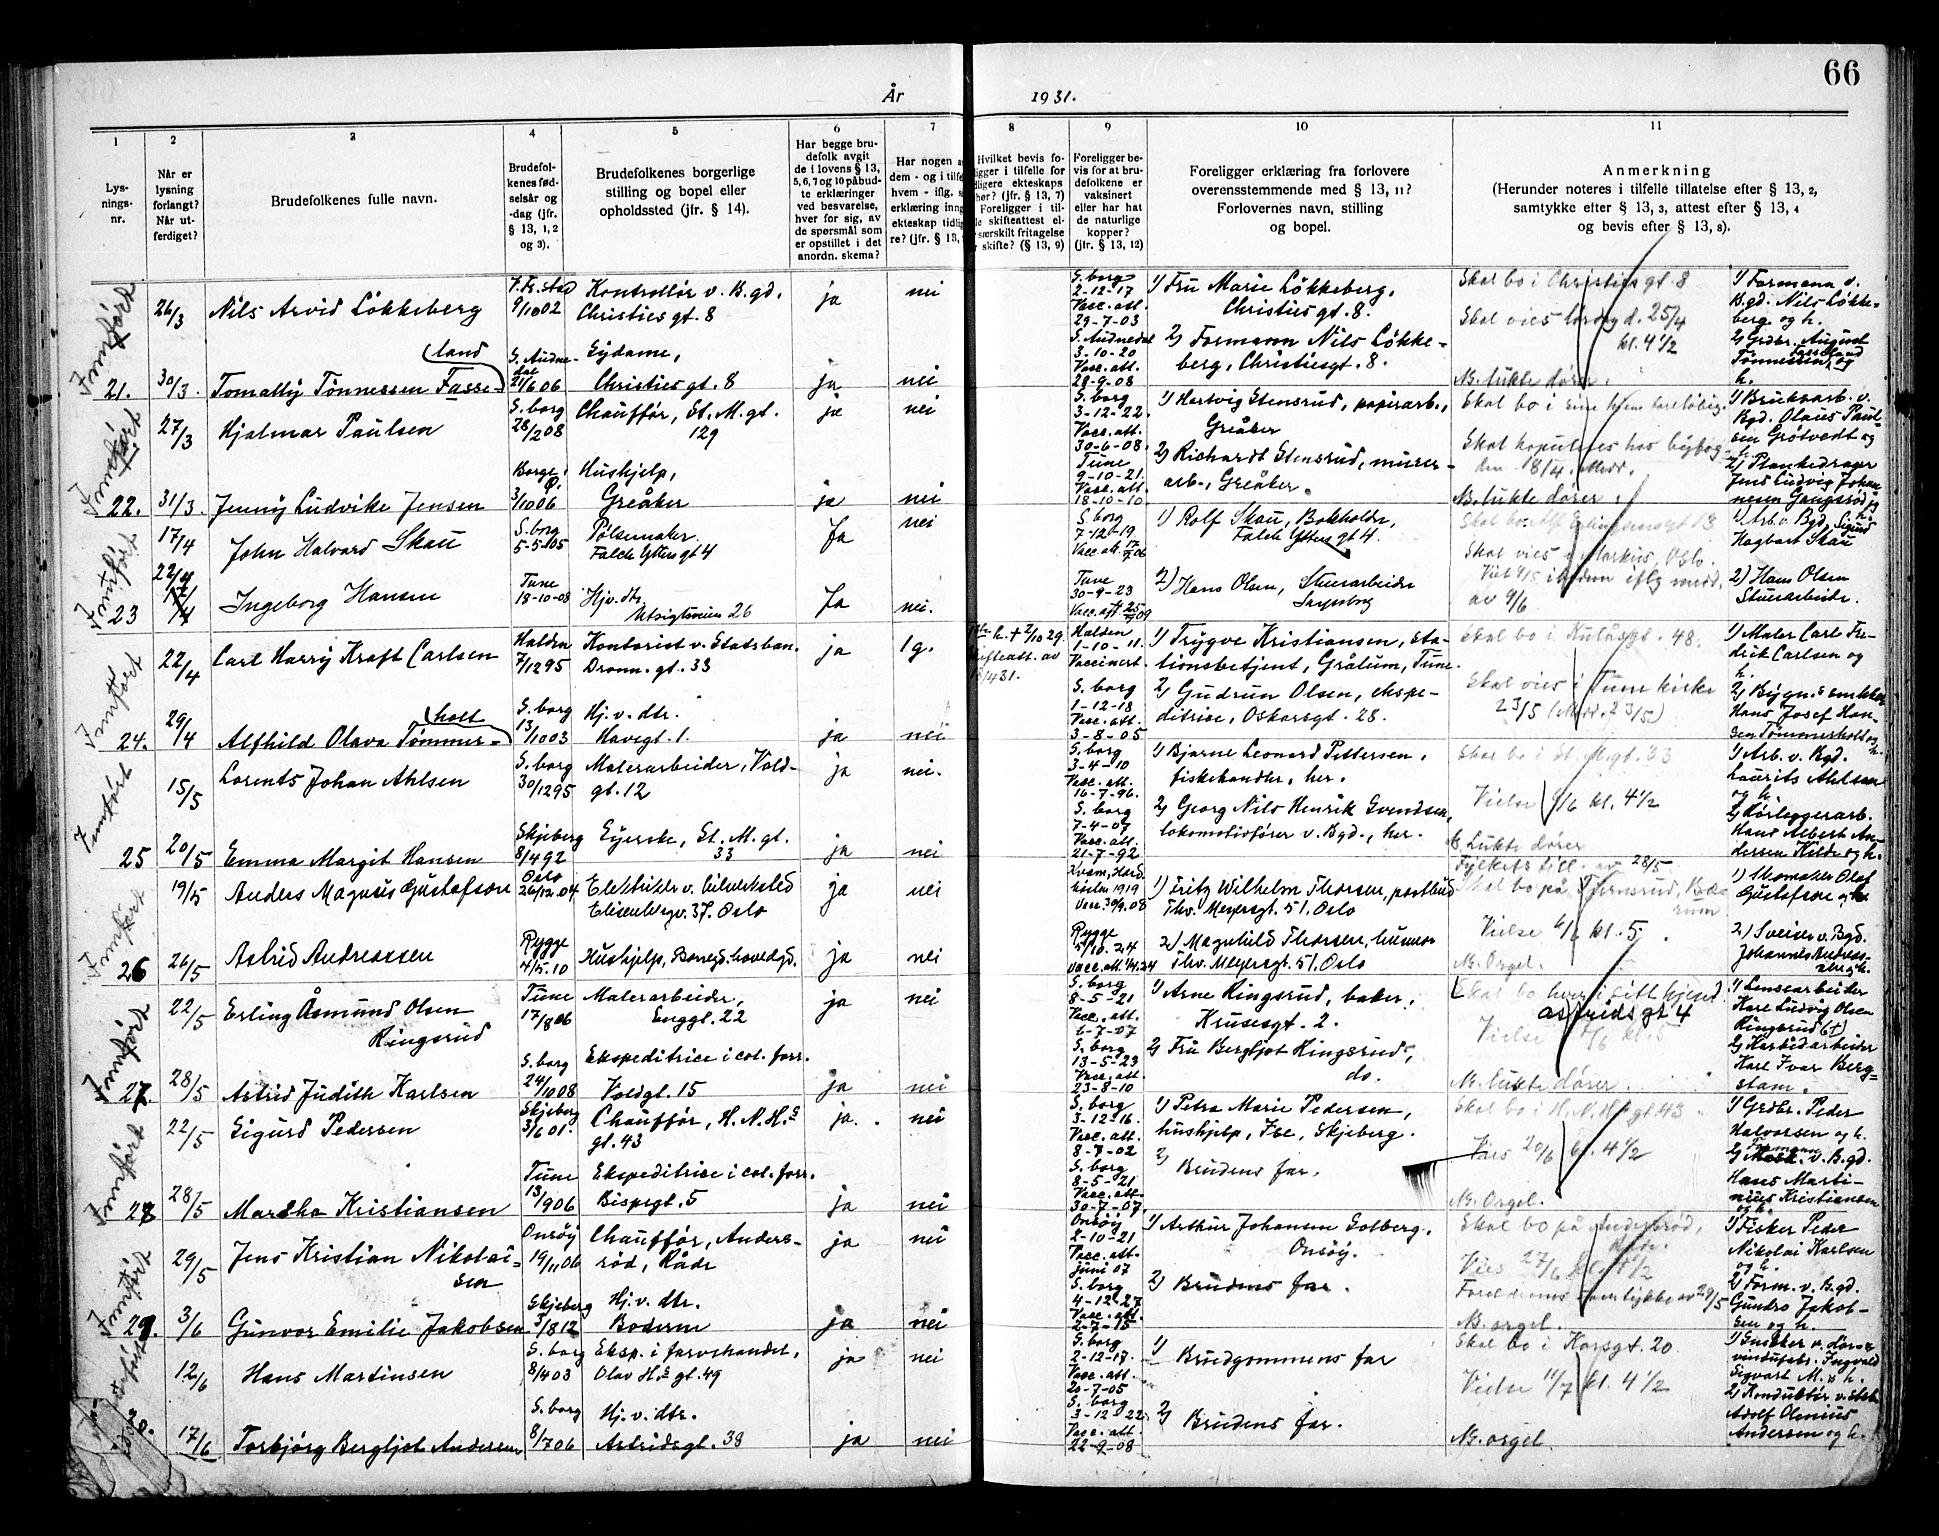 66
År 1931.
1
2
3
4
5
6
7
8
9
10
11
Lys-
nings-
nr.
Når er
lysning
forlangt?
Når ut-
ferdiget?
Brudefolkenes fulle navn.
Brudefol-
kenes fød-
selsår og
-dag (jfr.
§ 13, 1, 2
og 3).
Brudefolkenes borgerlige
stilling og bopel eller
opholdssted (jfr. § 14).
Har begge bru-
defolk avgit
de i lovens § 13,
5, 6, 7 og 10 påbud-
te erklæringer
ved besvarelse,
hver for sig, av
de spørsmål som
er opstillet i det
anordn. skema?
Har nogen a
dem - og i tilfe
hvem - iflg. s
erklæring inng
ekteskap tidli
re? (jfr. § 13,
Hvilket bevis fo-
ligger i tilfelle for
dligere ekteskaps
hør? (jfr. § 13, 7)
Foreligger i til-
le skifteattest el-
særskilt fritagelse
skifte? (§ 13, 9)
Foreligger be-
vis for at bru-
defolkene er
vaksinert
eller har hat
de naturlige
kopper?
(jfr. § 13, 12)
Foreligger erklæring fra forlovere
overensstemmende med § 13, 11?
Forlovernes navn, stilling
og bopel.
Anmerkning
(Herunder noteres i tilfelle tillatelse efter § 13, 2,
samtykke efter § 13, 3, attest efter § 13, 4
og bevis efter § 13, 8).
Innført
21.
26/3 Nils Arvid Løkkeberg
9/10 02
Kontrollør v. B.gd.
Christies gt. 8
ja nei
S.borg
2-12-17
Vacc. att.
29-7-03
1) Fru Marie Løkkeberg,
Christies gt. 8.
Skal bo i Christies gt. 8
Skal vies lørdag d. 25/4
kl. 4 1/2
1) Formann v.
B.gd. Nils Løkke-
berg og h.
30/3. Tomally Tønnessen Fasse-
land
21/6 06
Eydame,
Christies gt. 8
ja nei
S. Audnedal
3-10-20
Vacc. att.
28-9-08
2) Formann Nils Løkke-
berg, Christiesgt. 8.
N. lukte dører.
2) Grdbr. August
Tønnessen
h.
Innført
22.
27/3 Hjalmar Paulsen
S.borg
28/2 08
Chauffør, St. M. gt.
129
ja nei
S.borg
3-12-22.
Vacc. att.
30-6-08.
1) Hartvig Stensrud, papirarb.,
Greåker
Skal bo i sine hjem foreløbig.
den 18/4.
1) Brukvarb. v.
Bgd. Olaus Paul-
sen Grøtvedt og
31/3. Jenny Ludvike Jensen
Borge,
3/10 06
Hushjelp,
Greåker
ja nei
Tune
9-10-21.
Vacc. att.
18-10-10
2) Richardt Stensrud, murer-
arb., Greåker.
N. lukte dører.
2) Plankedrager
Jens Ludvig Johan
nesen
Innført
23
17/4 John Halvard Skau
S.borg
5-5-05
Pølsemaker
Falck Yttersgt 4
Ja nei
S.borg
7-12-19
Vacc. att. 17/7 06
1) Rolf Skau, Bokholder,
Falck Yttersgt 4.
Skal vies i Markus, Oslo.
1) Arb. v. Bgd. Sigurd
Hagbart Skau
22/4
17/4
Ingeborg Hansen
Tune
18-10-08
Hjv. dtr.
Utsigtsveien 26
Ja nei.
Tune
30-9-23
2) Hans Olsen, Stuerarbeider
Sarpsborg
av 9/6
2) Hans Olsen
Stuerarbeider.
Innført
24.
22/4 Carl Harry Kraft Carlsen
Halden
7/12 95
Kontorist v. Statsban.
Dronn. gt. 33
ja 1 g.
Halden
1-10-11.
Vaccinert.
1) Trygve Kristiansen, sta-
tionsbetjent, Grålum, Tune.
Skal bo i Kulåsgt. 48.
1) Maler Carl Fre-
drik Carlsen og
h.
29/4 Alfhild Olava Tømmer-
holt
S.borg
13/10 03
Hj. v. dtr.
Havegt. 1.
ja nei
S.borg
1-12-18
Vacc. att.
3-8-05
2) Gudrun Olsen, ekspe-
ditrise, Oskarsgt. 28.
Skal vies i Tune kirke
23/5 (Medd. 23/5)
2) Bygn. snekker
Hans Josef Han-
sen Tømmerholt og
h.
Innført
25
15/5 Lorents Johan Ahlsen
S.borg
30/12 95
Malerarbeider, Vold-
gt. 12
ja nei.
S.borg
3-4-10
Vacc. att.
16-7-96.
1) Bjarne Leonard Pettersen,
fiskehandler, her.
Skal bo i St. M.gt. 33
Vielse 6/6 kl. 4 1/2
1) Arb. v. Bgd.
Laurits Ahlsen
og h.
20/5 Emma Margit Hansen
Skjeberg
8/4 92
Eyerske, St. M. gt.
33
ja nei
S.borg
7-4-07
Vacc. att.
21-7-92
2) Georg Nils Henrik Svendsen,
lokomotivfører v. Bgd., her.
N. Lukte dører
2) Rørleggerarb.
Hans Albert An-
dersen Kilde og h.
Innført
26
19/5 Anders Magnus Gustafson
Oslo
26/12 04
Elektriker v. Silverksted
Elisenbergv. 37. Oslo
ja nei
1) Fritz Wilhelm Thorsen, postbud
Thv. Meyersgt. 51. Oslo
Fylkets till. av 28/5
Vielse 6/6 kl. 5.
1) Skomaker Olof
Gustafsson og h.
26/5 Astrid Andreassen
Rygge
4/5. 10
Hushjelp, Borregd. hovedgd.
ja nei
Rygge
5/10. 24
2) Magnhild Thorsen, husmor
Thv. Meyersgt. 51. Oslo
N. Orgel.
2) Sveiser v. Bgd.
Johannes Andreas-
sen og h.
Innført
27
22/5 Erling Åsmund Olsen
Ringsrud
Tune
17/8 06
Malerarbeider,
Enggt. 22
ja nei
S.borg
8-5-21
Vacc. att.
6-7-07
1) Arne Ringsrud, baker,
Krusesgt. 2.
Skal bo hver i sitt hjem
Astridsgt 4
1) Lensearbeider
Karl Ludvig Olsen
Ringsrud (+)
28/5 Astrid Judith Karlsen
S.borg
24/10 08
Ekspeditrice i col. forr.
Voldgt. 15
ja nei
S.borg
13-5-23
Vacc. att.
23-8-10
2) Fru Bergljot Ringsrud,
do.
N. lukte dører.
2) Karbidarbeider
Karl Ivar Berg-
stam.
Innført
28
22/5 Sigurd Pedersen
Skjeberg
3/6 01.
Chauffør, H. N. H.s
gt. 43
ja. nei
S.borg
3-12-16.
Vacc. att.
8-7-02
1) Petra Marie Pedersen,
hushjelp, Ise, Skjeberg.
Skal bo i H. N. H.s gt. 43
Vies 20/6 kl. 4 1/2
1) Grdbr. Peder
Halvorsen og h.
28/5 Martha Kristiansen
Tune
13/9 06
Ekspeditrice i col. forr.
Bispegt. 5
ja nei
S.borg
8-5-21
Vacc. att.
30-7-07.
2) Brudens far.
N. Orgel.
2) Formann v. B.gd.
Hans Marti-
nius Kristiansen
og h.
Innført
29.
29/5 Jens Kristian Nikolai-
sen
Onsøy
19/11 06
Chauffør, Anders-
rød, Råde
ja nei
Onsøy
2-10-21
Vacc. att.
juni 07
1) Arthur Johansen Solberg,
Onsøy.
Skal bo på Andersrød,
Vies 27/6 kl. 4 1/2
1) Fisker Peder
Nikolai Karlsen
og h.
3/6 Gunvor Emilie Jakobsen
Skjeberg
3/8 12
Hj. v. dtr.
Boderne
ja nei
S.borg
4-12-27
Vacc. att.
2-7-15
2) Brudens far.
Foreldrenes samtykke av 29/5
N. orgel.
2) Form. v. B.gd.
Gundro Jakob-
sen og h.
Innført
30.
12/6 Hans Martinsen
S.borg
8/4 03
Eksp. i farvehandel,
Olav H.s gt. 49
ja nei
S.borg
2-12-17.
Vacc. att.
20-7-05
1) Brudgommens far
Skal bo i Korsgt. 20
Vielse 11/7 kl. 4 1/2
1) Snekker v. dør- &
vindusfabr. Ingvald
Sigvart M. & h.
17/6 Torbjørg Bergljot Andersen
S.borg
8/7 06
Hj. v. dtr.
Astridsgt. 38
ja nei
S.borg
3-12-22
Vacc. att.
22-9-08
2) Brudens far.
N. orgel.
2) Konduktør v. Stsb.
Adolf Olenius
Andersen og h.